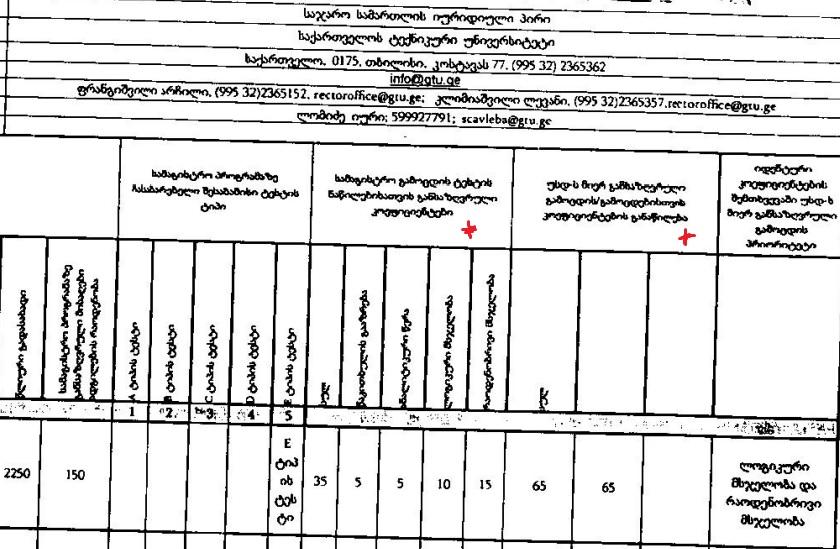 საჯარო სამართლის იურიდიული პირი
საქართველოს ტექნიკური უნივერსიტეტი
საქართველო, 0175, თბილისი, კოსტავას 77, (995 32) 2365362
info@gtu.ge
ფრანგიშვილი არჩილი, (995 32)2365152, rectoroffice@gtu.ge; კლიმიაშვილი ლევანი, (995 32)2365357,rectoroffice@gtu.ge
ლომიძე იური; 599927791; scavleba@gtu.ge
სამაგისტრო პროგრამაზე
ჩასაბარებელი შესაბამისი ტესტის
ტიპი
სამაგისტრო გამოცდის ტესტის
ნაწილებისათვის განსაზღვრული
კოეფიციენტები
უსდ-ს მიერ განსაზღვრული
გამოცდის/გამოცდებისთვის
კოეფიციენტების განაწილება
იდენტური
კოეფიციენტების
შემთხვევაში უსდ-ს
მიერ განსაზღვრული
გამოცდის
პრიორიტეტი
წლიური გადასახადი
სამაგისტრო პროგრამაზე
განსაზღვრული მისაღები
ადგილების რაოდენობა
A ტიპის ტესტი
B ტიპის ტესტი
C ტიპის ტესტი
D ტიპის ტესტი
E ტიპის ტესტი
სულ
წაკითხულის გააზრება
ანალიტიკური წერა
ლოგიკური მსჯელობა
რაოდენობრივი მსჯელობა
სულ
1 2 3 4 5
2250 150
E
ტიპ
ის
ტეს
ტი
35 5 5 10 15 65 65
ლოგიკური
მსჯელობა და
რაოდენობრივი
მსჯელობა